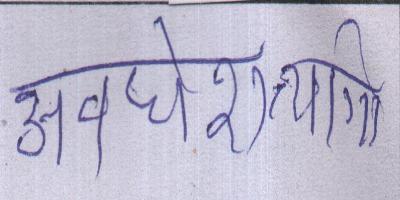 अवधेश त्यागी